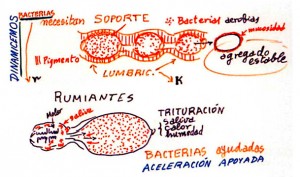 DINAMICEMOS
BACTERIAS
necesitan SOPORTE
Bacterias aerobias
mucosidad
Pigmento
LUMBRIC.
K
agregado estable
RUMIANTES
Moler
saliva
TRITURACIÓN
saliva
calor
humedad
BACTERIAS ayudadas
ACELERACIÓN APOYADA